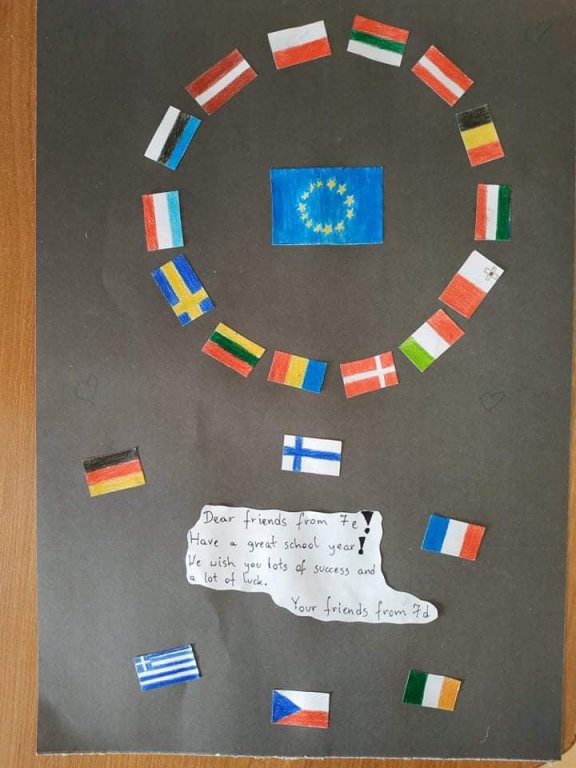 Dear friends from 7e!
Have a great school year!
We wish you lots of success and
a lot of luck.
Your friends from 7d